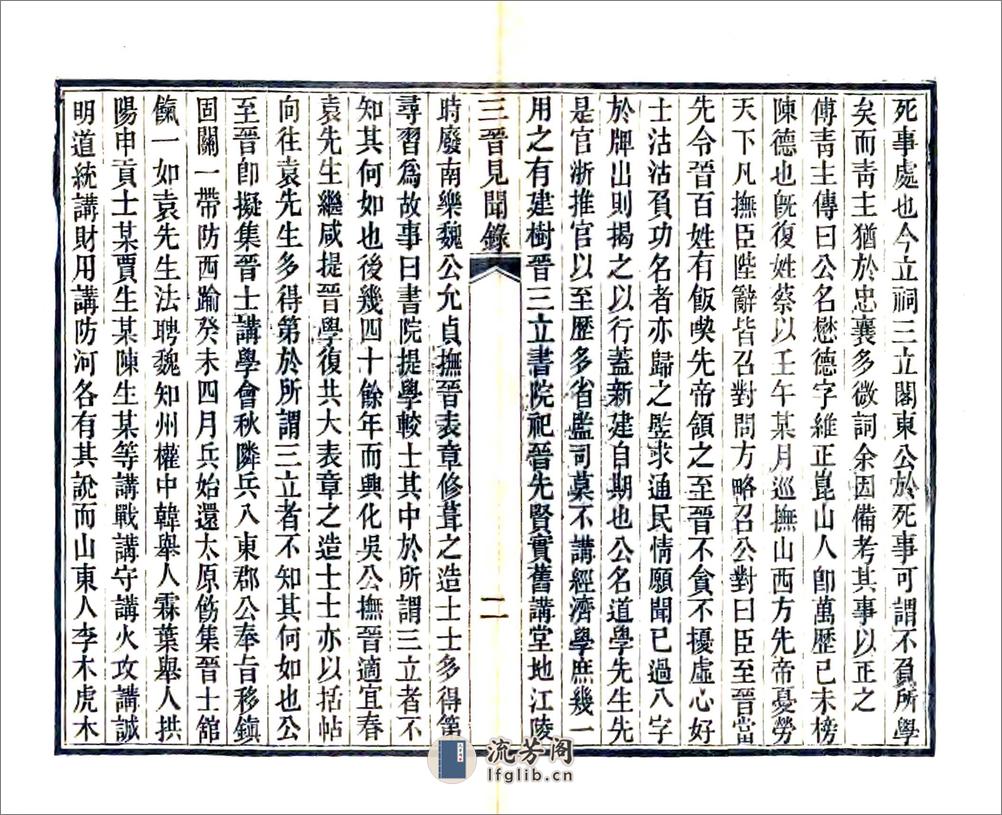 死事處也今立祠三立閣東公於死事可謂不負所學
矣而靑主猶於忠襄多微詞余因備考其事以正之
傅靑主傳曰公名懋德字維正崑山人卽萬歷己未榜
陳德也旣復姓蔡以壬午某月巡撫山西方先帝憂勞
天下凡撫臣陛辭皆召對問方略召公對曰臣至晉當
先令晉百姓有飯喫先帝領之至晉不貪不擾虛心好
士沽沽負功名者亦歸之監求通民情願聞已過八字
於牌出則揭之以行蓋新建自期也公名道學先生先
是官浙推官以至歷多省監司莫不講經濟學庶幾一
用之有建樹晉三立書院祀晉先賢實舊講堂地江陵
三晉見聞錄
二
時廢南樂魏公允貞撫晉表章修葺之造士士多得第
尋習爲故事曰書院提學較士其中於所謂三立者不
知其何如也後幾四十餘年而興化吳公撫晉適宜春
袁先生繼咸提晉學復共大表章之造士士亦以括帖
向往袁先生多得第於所謂三立者不知其何如也公
至晉卽擬集晉士講學會秋隣兵入東郡公奉旨移鎭
固關一帶防西踰癸未四月兵始還太原飭集晉士舘
餼一如袁先生法聘魏知州權中韓舉人霖葉舉人拱
陽申貢士某賈生某陳生某等講戰講守講火攻講誠
明道統講財用講防河各有其說而山東人李木虎木
流芳阁
lfglib.cn